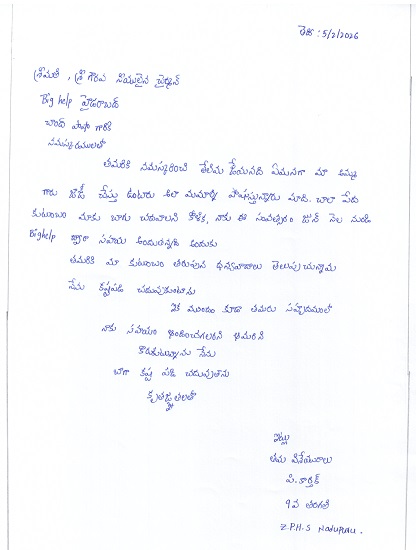 తేది : 5/2/2026
శ్రీమతి, శ్రీ గౌరవ నీయులైన చైర్మన్
Big help హైదరాబాద్
చాంద్ పాషా గారికి
నమస్కారములతో
తమరికి నమస్కరించి తెలియ చేయునది ఏమనగా మా అమ్మ
గారు జాబ్ చేస్తు ఉంటారు అలా మమ్మల్ని పోషిస్తున్నారు మాది చాలా పేద
కుటుంబం మాకు బాగు చదవాలని కోరిక, నాకు ఈ సంవత్సరం జూన్ నెల నుండి
Bighelp ద్వారా సహాయ అందుతున్నది అందుకు
తమరికి మా కుటుంబం తరుపున ధన్యవాదాలు తెలుపుచున్నాము
నేను కష్టపడి చదువుకుంటాను
ఇక ముందు కూడా తమరు సహృదయంతో
నాకు సహాయం అందించగలరని తమరిని
కోరుకుంటున్నాను నేను
బాగా కష్ట పడి చదువుతాను
కృతజ్ఞతలతో
ఇట్లు
తమ విధేయురాలు
పి. కార్తీక్
9వ తరగతి
Z.P.H.S Nadupalli.